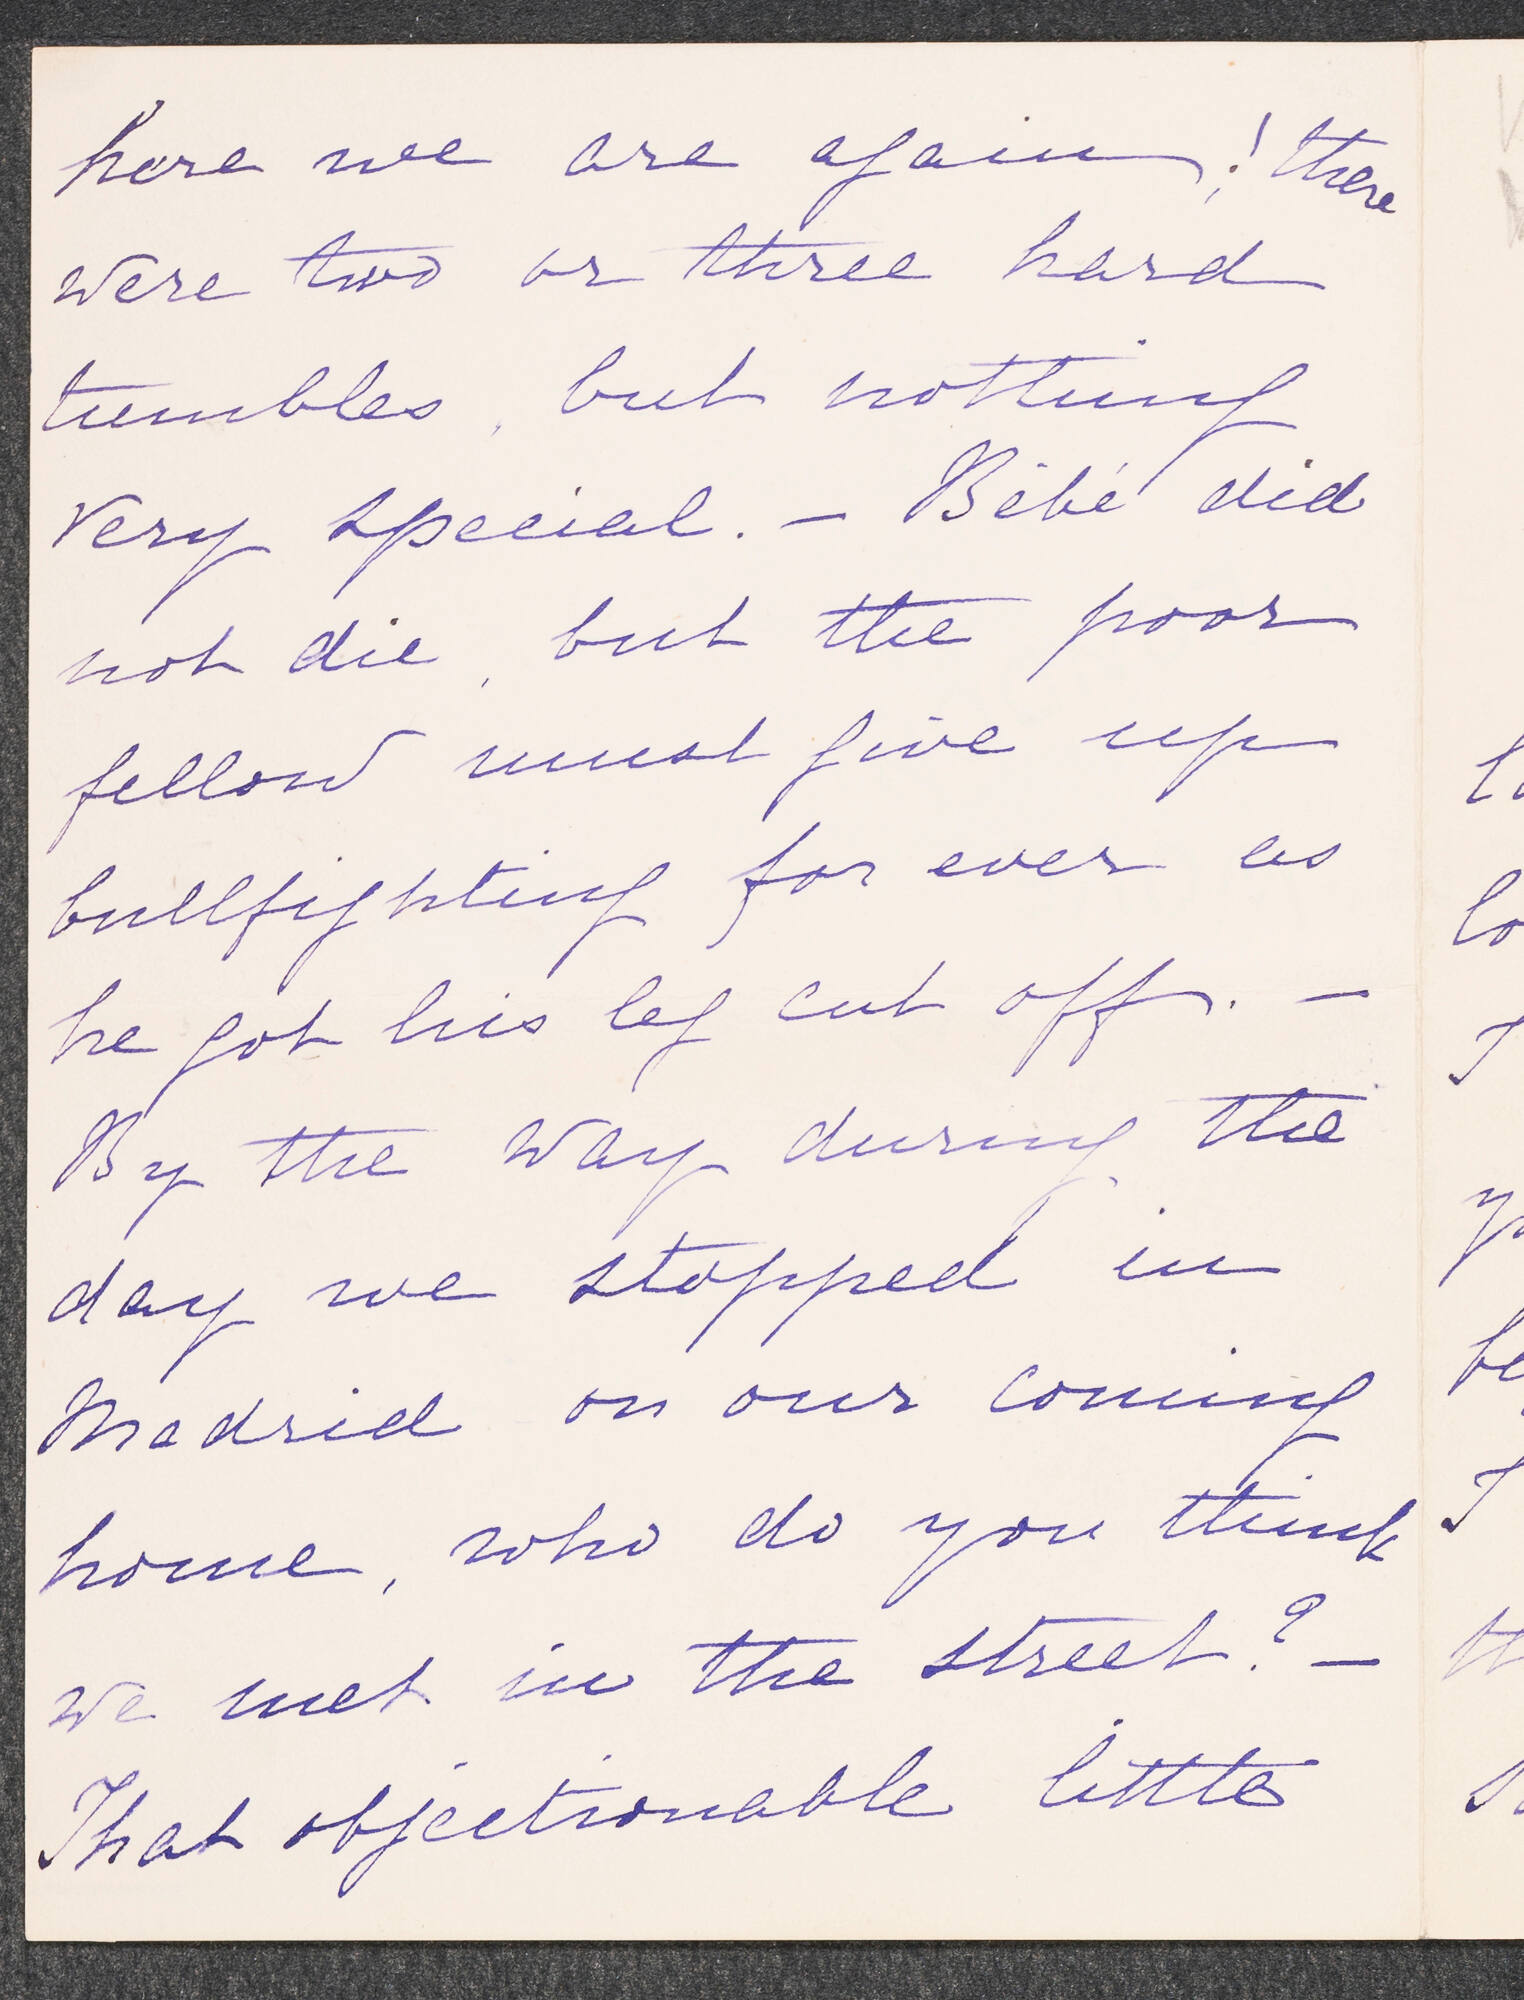 here we are again,! there
were two or three hard
tumbles, but nothing
very special. — Bébé did
not die, but the poor
fellow must give up
bullfighting for ever as
he got his leg cut off. —
By the way during the
day we stopped in
Madrid on our coming
home, who do you think
we met in the street? —
That objectionable little